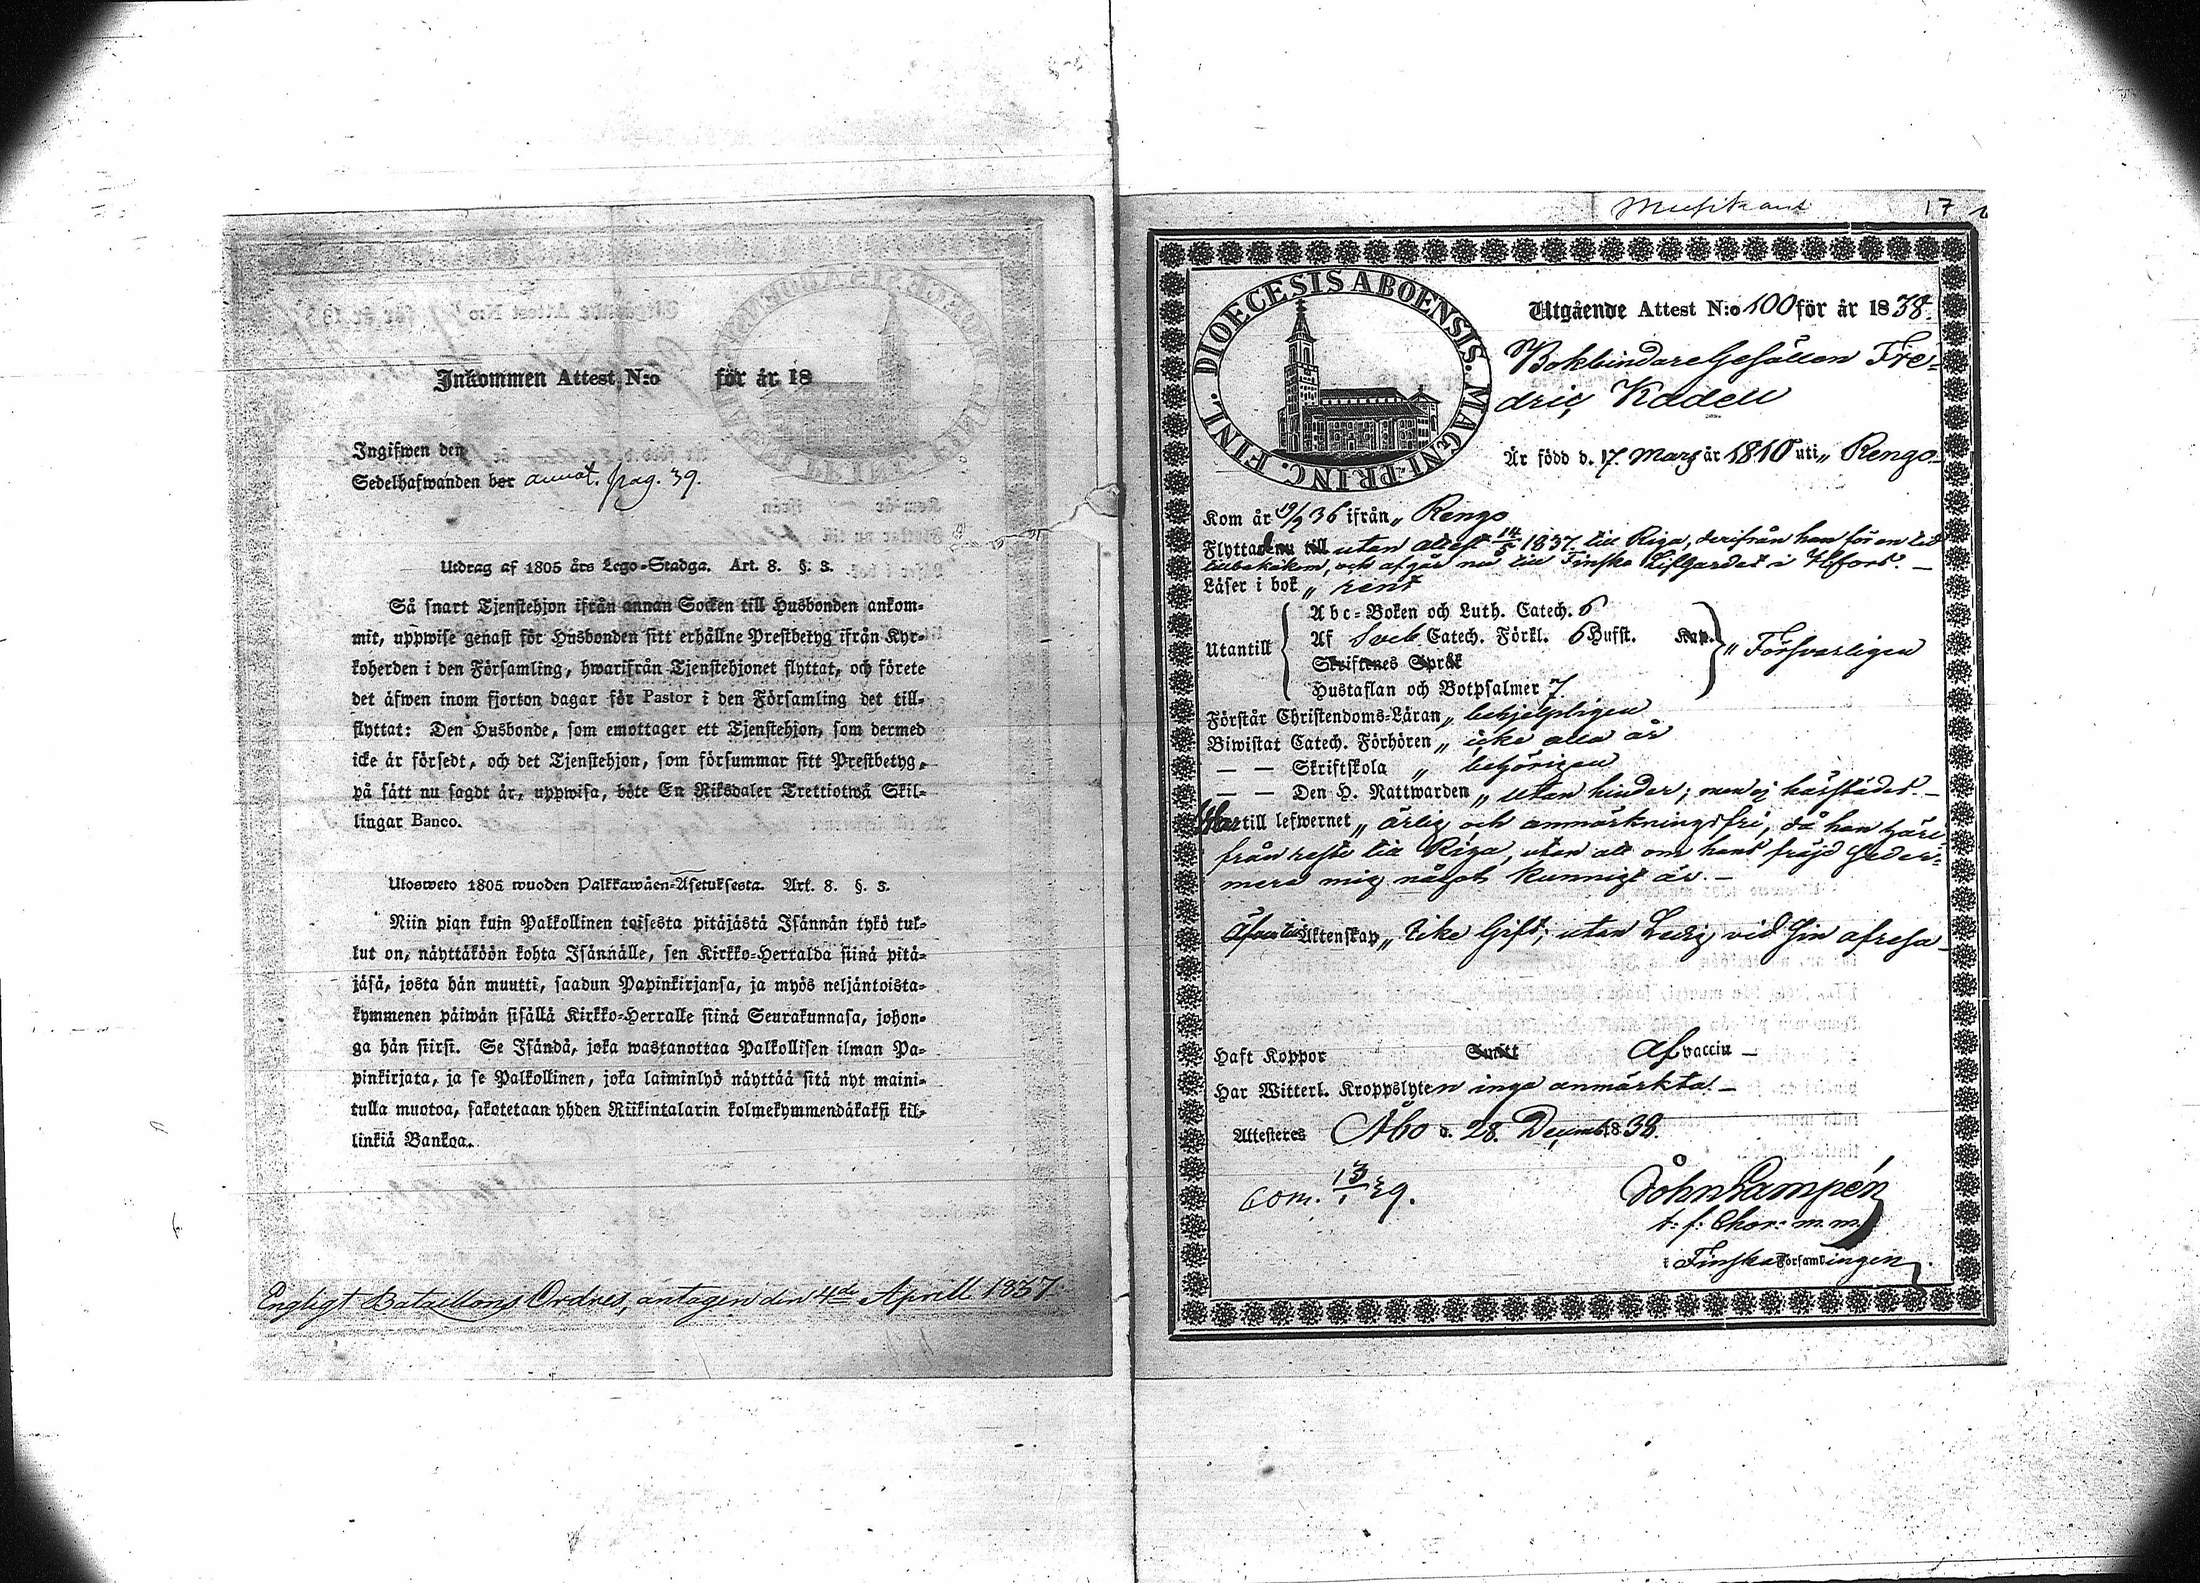 Inkommen Attest N:o för år 18
Ingifwen den
Sedelhafwanden bor annot. pag. 39.
Utdrag af 1805 års Lego-Stadga. Art. 8. §. 3.
Så snart Tjenstehjon ifrån annan Socken till Husbonden ankom-
mit, uppwise genast för Husbonden sitt erhållne Prestbetyg ifrån Kyr-
koherden i den Församling, hwarifrån Tjenstehjonet flyttat, och förete
det äfwen inom fjorton dagar för Pastor i den Församling det till-
flyttat: Den Husbonde, som emottager ett Tjenstehjon, som dermed
icke är försedt, och det Tjenstehjon, som försummar sitt Prestbetyg,
på sätt nu sagdt är, uppwisa, böte En Riksdaler Trettiotwå Skil-
lingar Banco.
Ulosweto 1805 wuoden Palkkawäen-Asetuksesta. Art. 8. §. 3.
Niin pian kuin Palkollinen toisesta pitäjästä Isännän tykö tul-
lut on, näyttäköön kohta Isännälle, sen Kirkko-Herralda siinä pitä-
jäsä, josta hän muutti, saadun Papinkirjansa, ja myös neljäntoista-
kymmenen päiwän sisällä Kirkko-Herralle siinä Seurakunnasa, johon-
ga hän siirsi. Se Isändä, joka wastanottaa Palkollisen ilman Pa-
pinkirjata, ja se Palkollinen, joka laiminlyö näyttää sitä nyt maini-
tulla muotoa, sakotetaan yhden Riikintalarin kolmekymmendäkaksi kil-
linkiä Bankoa.
Enligt Bataillons Ordres, antagen den 4de Aprill 1837.
Musikant 17
DIOECESIS ABOENSIS. MAGNI PRINC. FINL.
Utgående Attest N:o 100 för år 1838.
Bokbindare Gesällen Fre-
dric Kadell
Är född d. 17. Mars år 1810 uti „ Rengo
Kom år 19/9 36 ifrån „ Rengo
Flyttade utan attest 14/5 1837 till Riga, derifrån han för en tid
tillbakakom, och afgår nu till Finska Lifgardet i Hfors. –
Läser i bok „ rent
Utantill Abc-Boken och Luth. Catech. 6
Af Sveb Catech. Förkl. 6 Hufst. Kap. „ Försvarligen
Skriftenes Språk
Hustaflan och Botpsalmer 7
Förstår Christendoms-Läran „ behjelpligen
Biwistat Catech. Förhören „ icke alla år
— — Skriftskola „ behörigen
— — Den H. Nattwarden „ utan hinder; men ej härstädes. –
till lefwernet „ ärlig och anmärkningsfri, då han häri-
från reste till Riga, utan att om hans fräjd seder-
mera mig något kunnigt är. –
Äktenskap „ Icke Gift; utan Ledig vid sin afresa
Haft Koppor Smitt Af vaccin –
Har Witterl. Kroppslyten inga anmärkta. –
Attesteres Åbo d. 28. Decemb. 1838.
Com. 13/1 39.
John Lampén
t. f. Chor: m. m.
i Finska Församlingen.